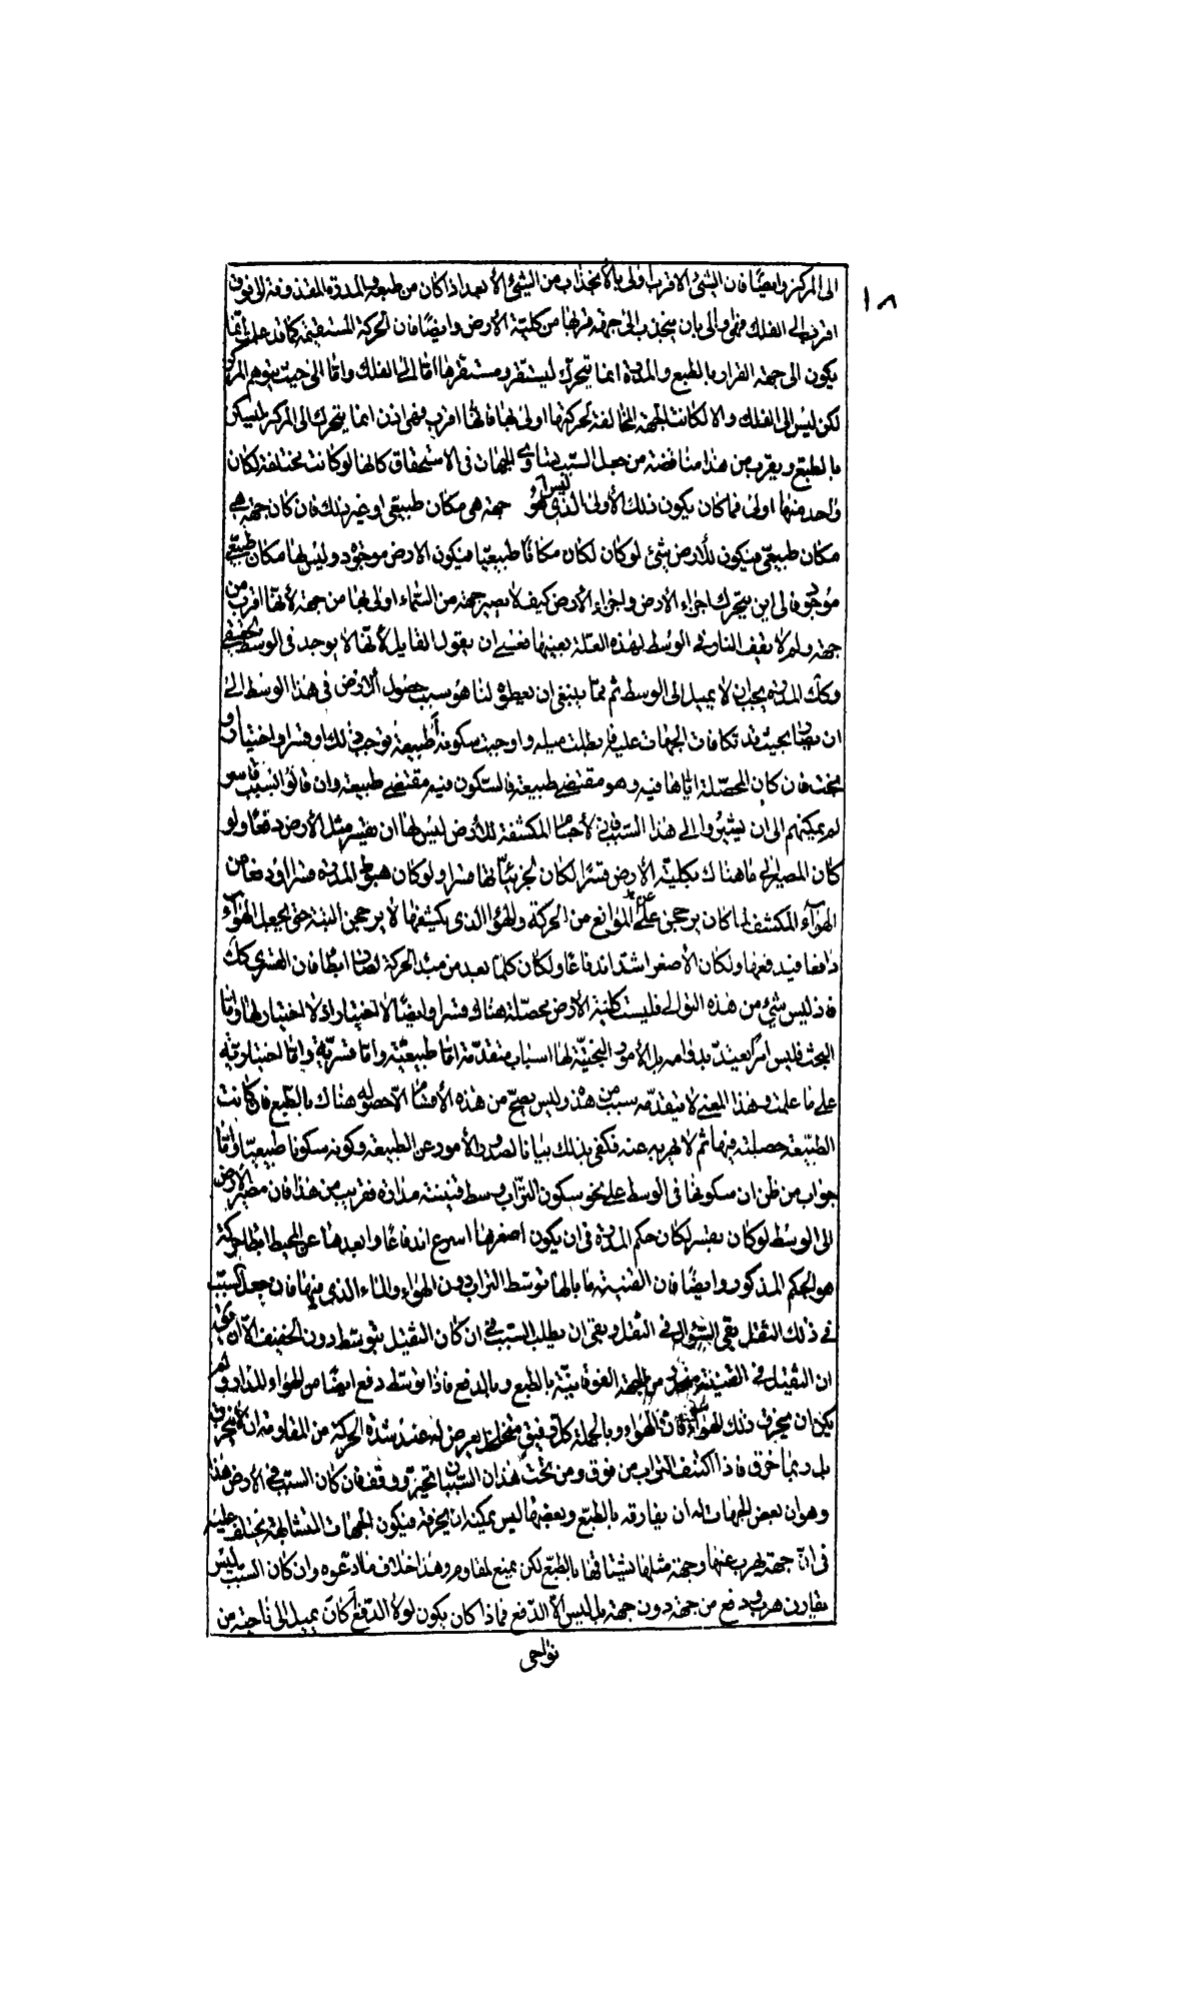 الى المركز وايضًا فان الشئ الاقرب اولى بالانجذاب من الشئ الابعد اذا كان من طبعه والمدرة المقذوفة الى فوق
١٨
اقرب الى الفلك فهى اولى بان ينجذب الى جهة قربها من كلية الارض وايضًا فان الحركة المستقيمة كما قد علمت انما
يكون الى جهة القرار بالطبع والمدرة انما يتحرك ليستقر ومستقرها اما الى الفلك واما الى حيث يتوهم المركز
لكن ليس الى الفلك والا لكانت الجهة المخالفة لحركتها اولى بها فانها اقرب فهى اذن انما يتحرك الى المركز ليسكن
بالطبع ويقرب من هذا مناقضة من جعل السبب تساوى الجهات فى الاستحقاق كانها لو كانت مختلفة لكان
واحد منها اولى فما كان يكون ذلك الأولى الذى هو ليس او جهة هى مكان طبيعى او غير ذلك فان كان جهة هى
مكان طبيعى فيكون للأرض شئ لو كان لكان مكانًا طبيعيا فيكون الارض موجود وليس لها مكان طبيعى
موجود فالى اين يتحرك اجزاء الارض واجزاء الأرض كيف لا يصير جهة من السماء اولى بها من جهة لأنها اقرب من
جهة ولم لا يقف النار فى الوسط لهذه العلة بعينها فعسى ان يقول القايل لأنها لا يوجد فى الوسط الحقيقى
وكك المدرة يجب ان لا يميل الى الوسط ثم مما ينبغى ان يعطوه لنا هو سبب حصول الارض فى هذا الوسط الى
ان صار بحيث قد تكافات الجهات عليه فبطلت ميله واوجبت سكونه أطبيعة توجب ذلك او قسر او اختيار او
بخت فان كان المحصلة اياها فيه وهو مقتضى طبيعة فالسكون فيه مقتضى طبيعة وان قالوا السبب قاسر
لم يمكنهم الى ان يشيروا الى هذا السبب فان الأجسام المكتنفة للأرض ليس لها ان يقسر مثل الأرض دفعًا ولو
كان المصير الى ما هناك بكلية الارض قسرًا لكان لجزئياتها قسرا ولو كان هبوط المدرة قسرا او دفعا من
الهوآء المكتنف لما كان يرجحن على الموانع من الحركة والهوا الذى يكتنفها لا يرجحن البتة حتى يجعل الهوآء
دافعا فيدفعها ولكان الأصغر اشد اندفاعًا ولكان كلما بعد من مبدء الحركة لصار ابطأ فان القسرى كك
فاذ ليس شئ من هذه التوالى فليست كلية الأرض محصلة هناك قسرا وايضًا لا اختيارا اذ لا اختيار لها واما
البخت فليس امرا يعتد بدوامه بل الأمور البختية لها اسباب متقدمة اما طبيعية واما قسرية واما اختيارية
على ما علمت وهذا المعنى لا يتقدمه سبب من هذه وليس يصح من هذه الأقسام الا حصوله هناك بالطبع فان كانت
الطبيعة حصلته فيها ثم لا يهرب عنه فكفى بذلك بيانا لصدور الأمور عن الطبيعة وكونه سكونا طبيعيا واما
جواب من ظن ان سكونها فى الوسط على نحو سكون التراب وسط قنينة مدارة فقريب من هذا فان مصير الأرض
الى الوسط لو كان بقسر لكان حكم المدرة فى ان يكون اصغرها اسرع اندفاعًا وابعدها عن المحيط ابطأ حركة
هو الحكم المذكور وايضًا فان القنينة ما بالها توسط التراب دون الهواء والماء الذى فيها فان جعل السبب
فى ذلك الثقل بقى السؤال فى الثقل وبقى ان يطلب السبب فى ان كان الثقيل يتوسط دون الخفيف الا ان
ان الثقيل فى القنينة من الجهة الفوقانية بالطبع وبالدفع فاذا توسط دفع ايضًا من الهواء المدار ولم
يكن ان يخرق ذلك الهواء فان الهواء وبالجملة كل رقيق متخلخل يعرض له عند شدة الحركة من المقاومة ان لا ينخرق
بل ربما خرق فاذا اكتنف التراب من فوق ومن تحت هذان السببان تحير ووقف فان كان السبب فى الأرض هذا
وهو ان بعض الجهات له ان يفارقه بالطبع وبعضها ليس يمكنه ان يخرقه فيكون الجهات المتشابهة يختلف عليه
فى ان جهة يهرب عنها وجهة مثلها يشتاقها بالطبع لكن يمنع لمقاوم وهذا خلاف ما ادعوه وان كان السبب ليس
يقارن هرب ودفع من جهة دون جهة بل ليس الا الدفع فماذا كان يكون لولا الدفع أكان يميل الى ناحية من
نواحى